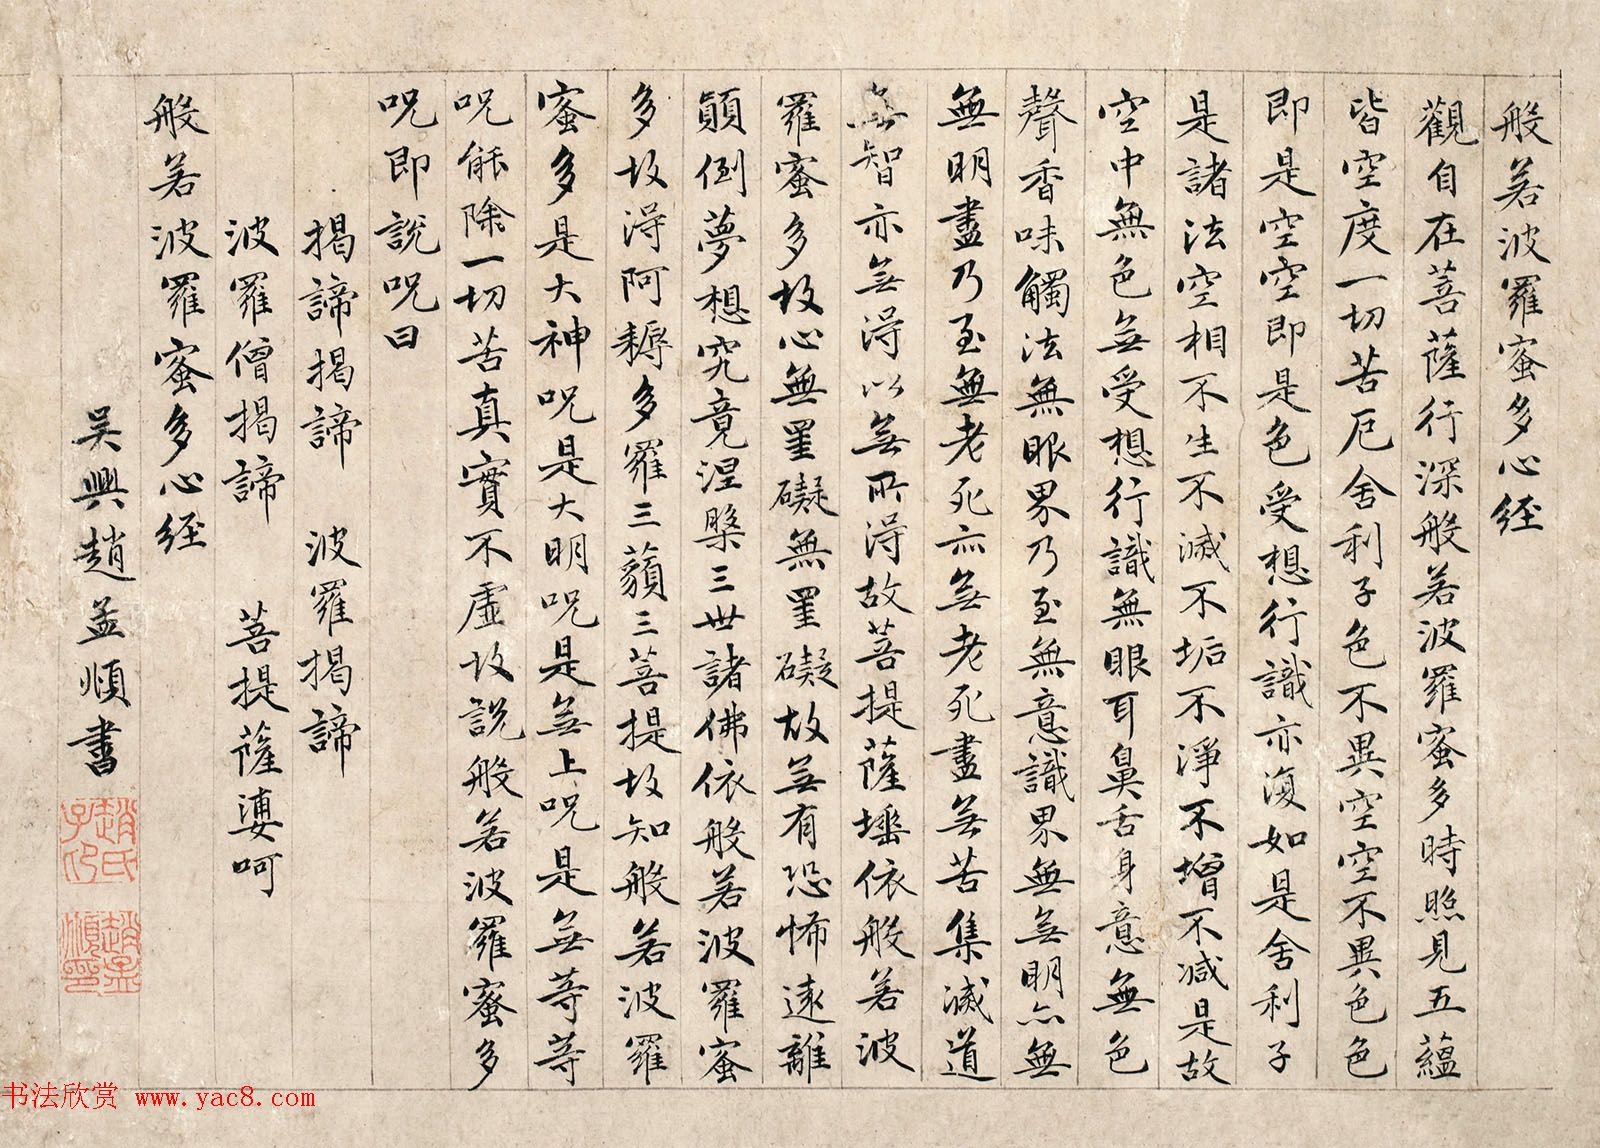 般若波羅蜜多心経
觀自在菩薩行深般若波羅蜜多時照見五蘊
皆空度一切苦厄舍利子色不異空空不異色色
即是空空即是色受想行識亦復如是舍利子
是諸法空相不生不滅不垢不淨不增不減是故
空中無色無受想行識無眼耳鼻舌身意無色
聲香味觸法無眼界乃至無意識界無無明亦無
無明盡乃至無老死亦無老死盡無苦集滅道
無智亦無得以無所得故菩提薩埵依般若波
羅蜜多故心無罣礙無罣礙故無有恐怖遠離
顛倒夢想究竟涅槃三世諸佛依般若波羅蜜
多故得阿耨多羅三藐三菩提故知般若波羅
蜜多是大神呪是大明呪是無上呪是無等等
呪能除一切苦真實不虛故說般若波羅蜜多
呪即說呪曰
揭諦揭諦 波羅揭諦
波羅僧揭諦 菩提薩婆呵
般若波羅蜜多心経
吳興趙孟頫書
趙氏子印
趙孟頫印
书法欣赏 www.yac8.com